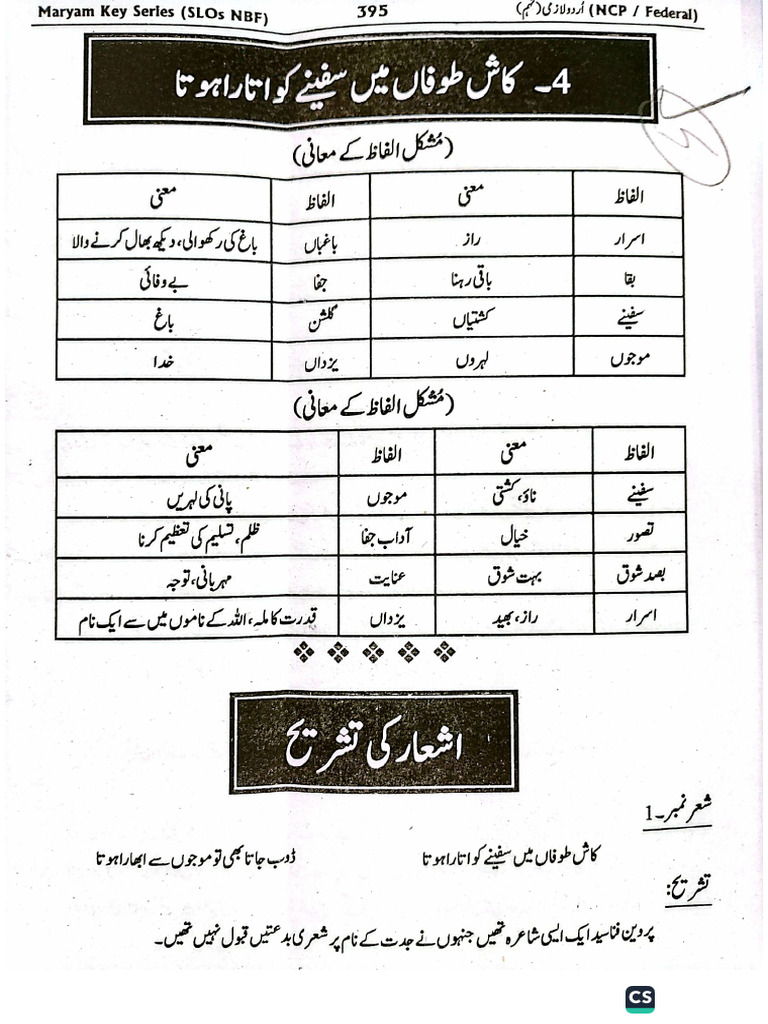 Maryam Key Series (SLOs NBF) 395 اُردو لازمی (نہم) (NCP / Federal)
4۔ کاش طوفاں میں سفینے کو اتارا ہوتا
(مُشکل الفاظ کے معانی)
الفاظ معنی الفاظ معنی
اسرار راز باغباں باغ کی رکھوالی، دیکھ بھال کرنے والا
بقا باقی رہنا جفا بے وفائی
سفینے کشتیاں گلشن باغ
موجوں لہروں یزداں خدا
(مُشکل الفاظ کے معانی)
الفاظ معنی الفاظ معنی
سفینے ناؤ، کشتی موجوں پانی کی لہریں
تصور خیال آداب جفا ظلم، تسلیم کی تعظیم کرنا
بصد شوق بہت شوق عنایت مہربانی، توجہ
اسرار راز، بھید یزداں قدرت کاملہ، اللہ کے ناموں میں سے ایک نام
اشعار کی تشریح
شعر نمبر۔1
کاش طوفاں میں سفینے کو اتارا ہوتا ڈوب جاتا بھی تو موجوں سے ابھارا ہوتا
تشریح:
پروین فنا سید ایک ایسی شاعرہ تھیں جنہوں نے جدت کے نام پر شعری بدعتیں قبول نہیں تھیں۔
CS